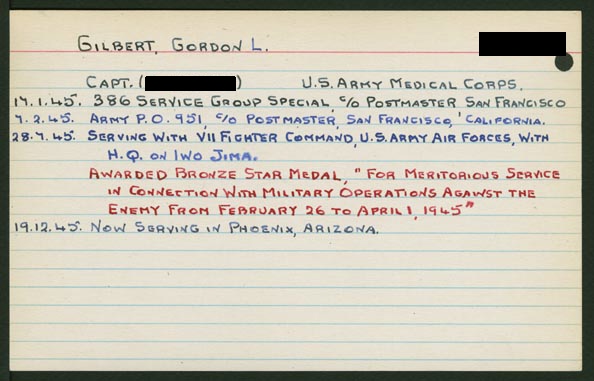 GILBERT, GORDON L.
CAPT. ( ) U.S. ARMY MEDICAL CORPS.
17.1.45. 386 SERVICE GROUP SPECIAL, C/O POSTMASTER SAN FRANCISCO
7.2.45. ARMY P.O. 951, C/O POSTMASTER, SAN FRANCISCO, CALIFORNIA.
28.7.45. SERVING WITH VII FIGHTER COMMAND, U.S. ARMY AIR FORCES, WITH
H.Q. ON IWO JIMA.
AWARDED BRONZE STAR MEDAL, "FOR MERITORIOUS SERVICE
IN CONNECTION WITH MILITARY OPERATIONS AGAINST THE
ENEMY FROM FEBRUARY 26 TO APRIL 1, 1945"
19.12.45. NOW SERVING IN PHOENIX, ARIZONA.